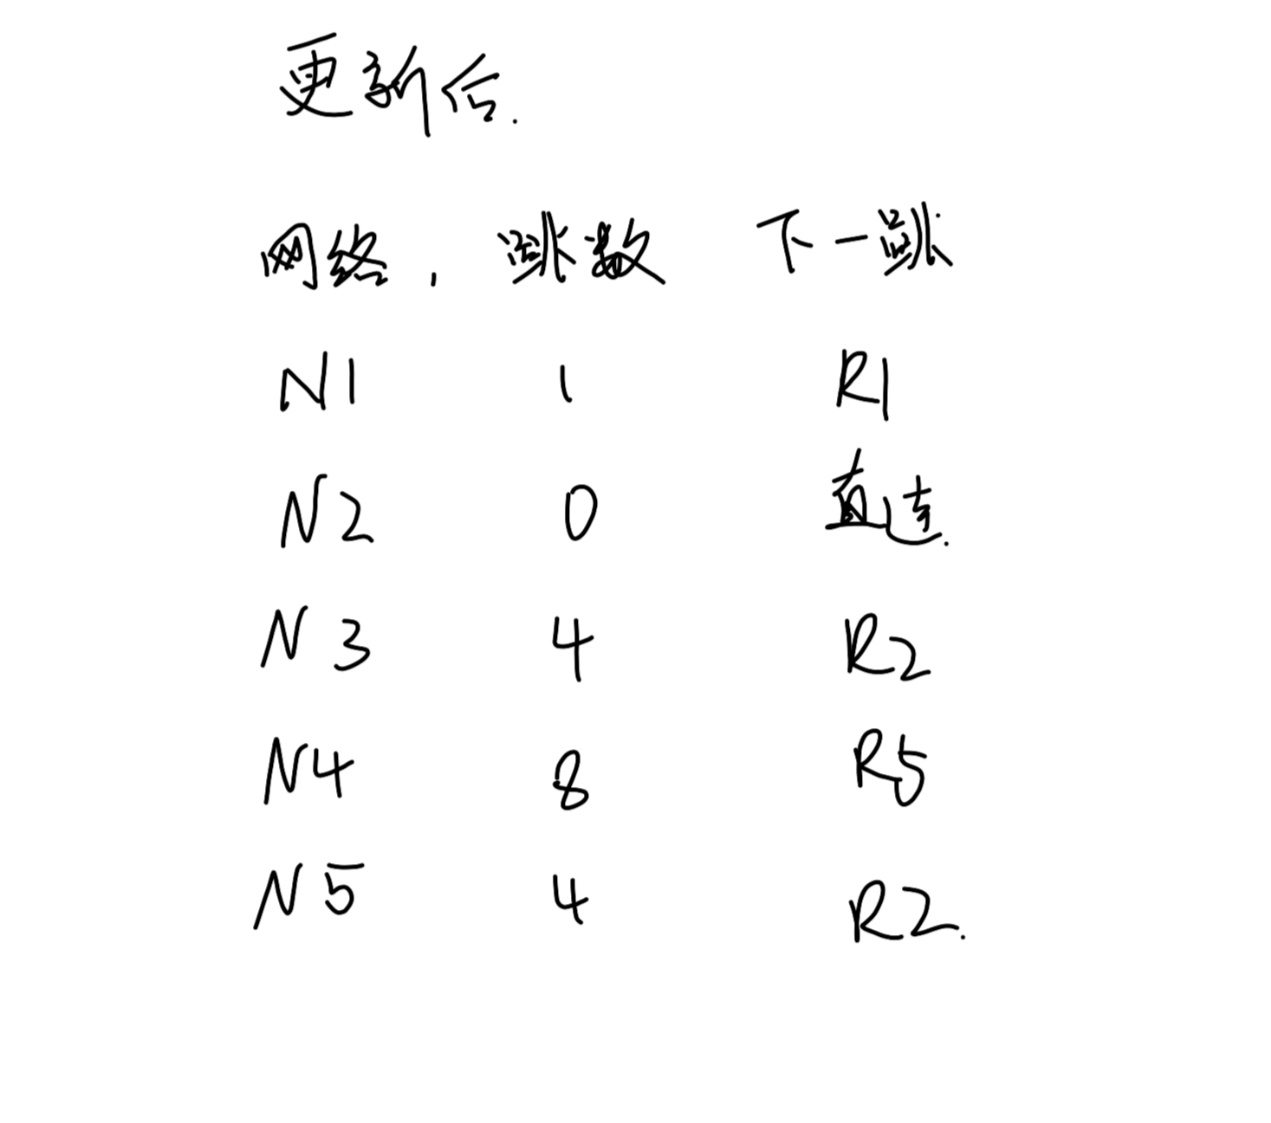 更新后.
网络, 跳数 下一跳
N1 1 R1
N2 0 直连.
N3 4 R2
N4 8 R5
N5 4 R2.